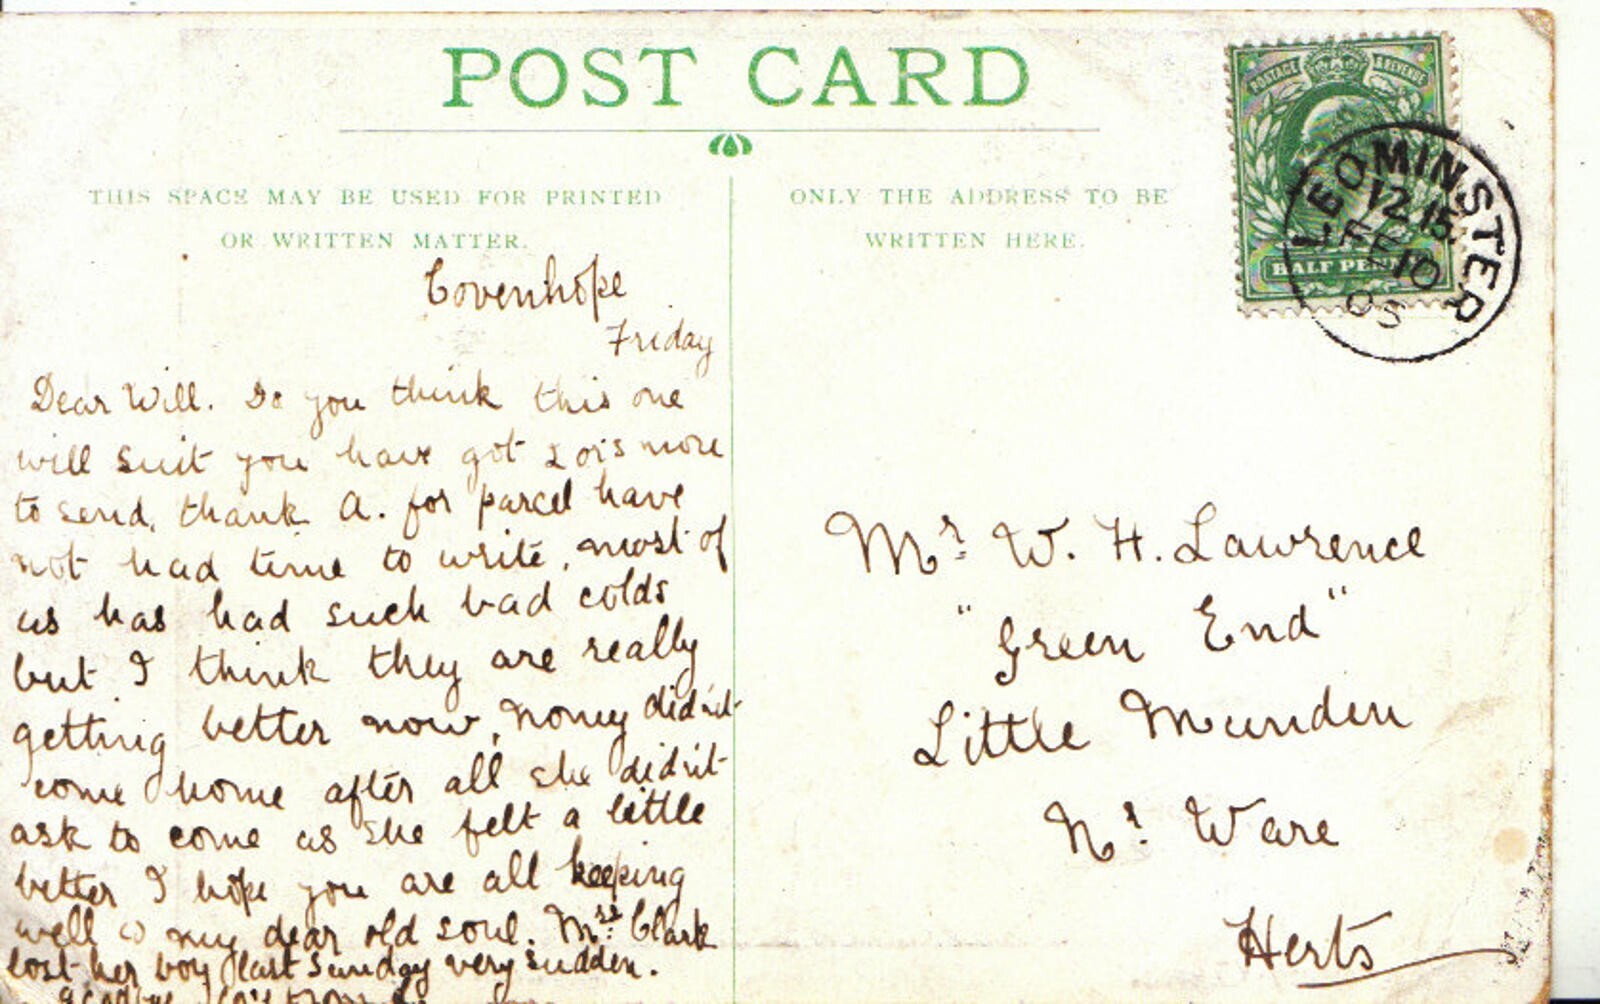 POST CARD
THIS SPACE MAY BE USED FOR PRINTED
OR WRITTEN MATTER.
ONLY THE ADDRESS TO BE
WRITTEN HERE.
POSTAGE & REVENUE
HALF PENNY
LEOMINSTER
12.15
FE 10
05
Covenhope
Friday
Dear Will. Do you think this one
will suit you have got lots more
to send, thank A. for parcel have
not had time to write, most of
us has had such bad colds
but I think they are really
getting better now, didn't
come home after all she didn't
ask to come as she felt a little
better I hope you are all keeping
well my dear old soul. Mrs Clark
lost her boy last Sunday very sudden.
Mr W. H. Lawrence
"Green End"
Little Munden
Nr Ware
Herts